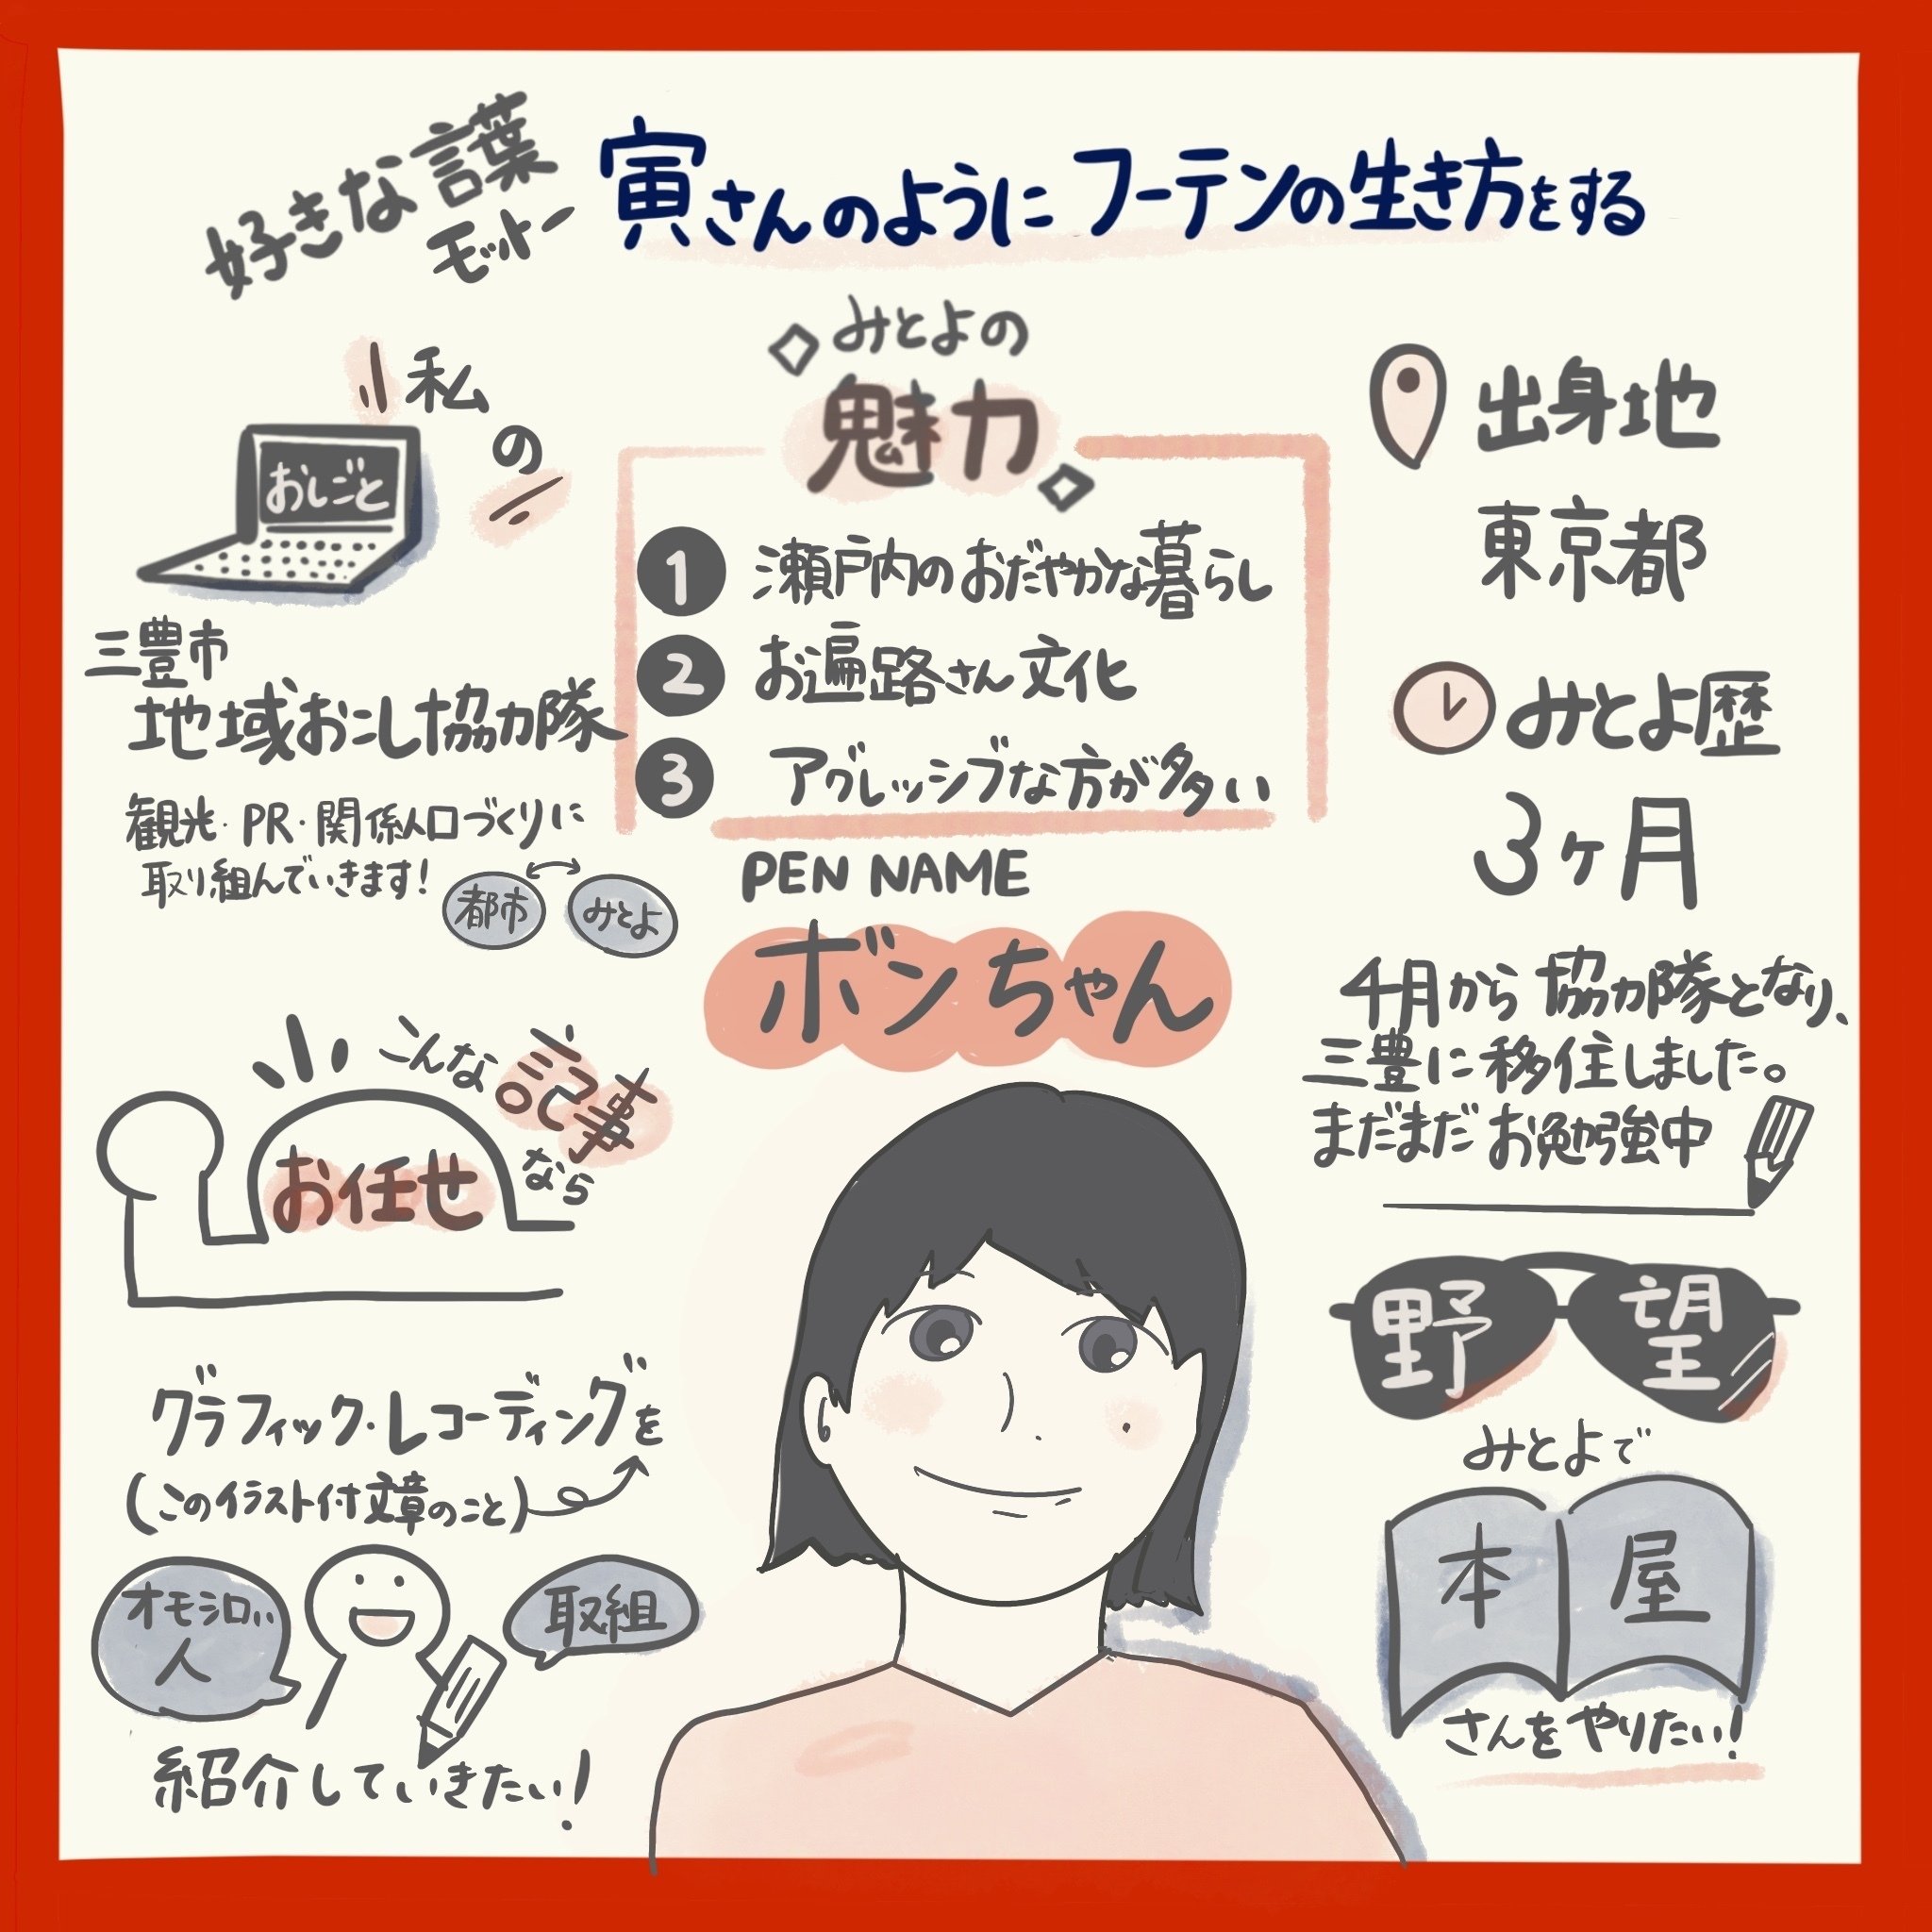 好きな言葉
モットー
寅さんのようにフーテンの生き方をする
私の
おしごと
三豊市
地域おこし協力隊
観光・PR・関係人口づくりに
取り組んでいきます!
都市
みとよ
みとよの
魅力
1 瀬戸内のおだやかな暮らし
2 お遍路さん文化
3 アグレッシブな方が多い
出身地
東京都
みとよ歴
3ヶ月
4月から協力隊となり、
三豊に移住しました。
まだまだお勉強中
PEN NAME
ボンちゃん
こんな記事なら
お任せ
グラフィック・レコーディングを
(このイラスト付文章のこと)
オモシロい
人
取組
紹介していきたい!
野望
みとよで
本屋
さんをやりたい!